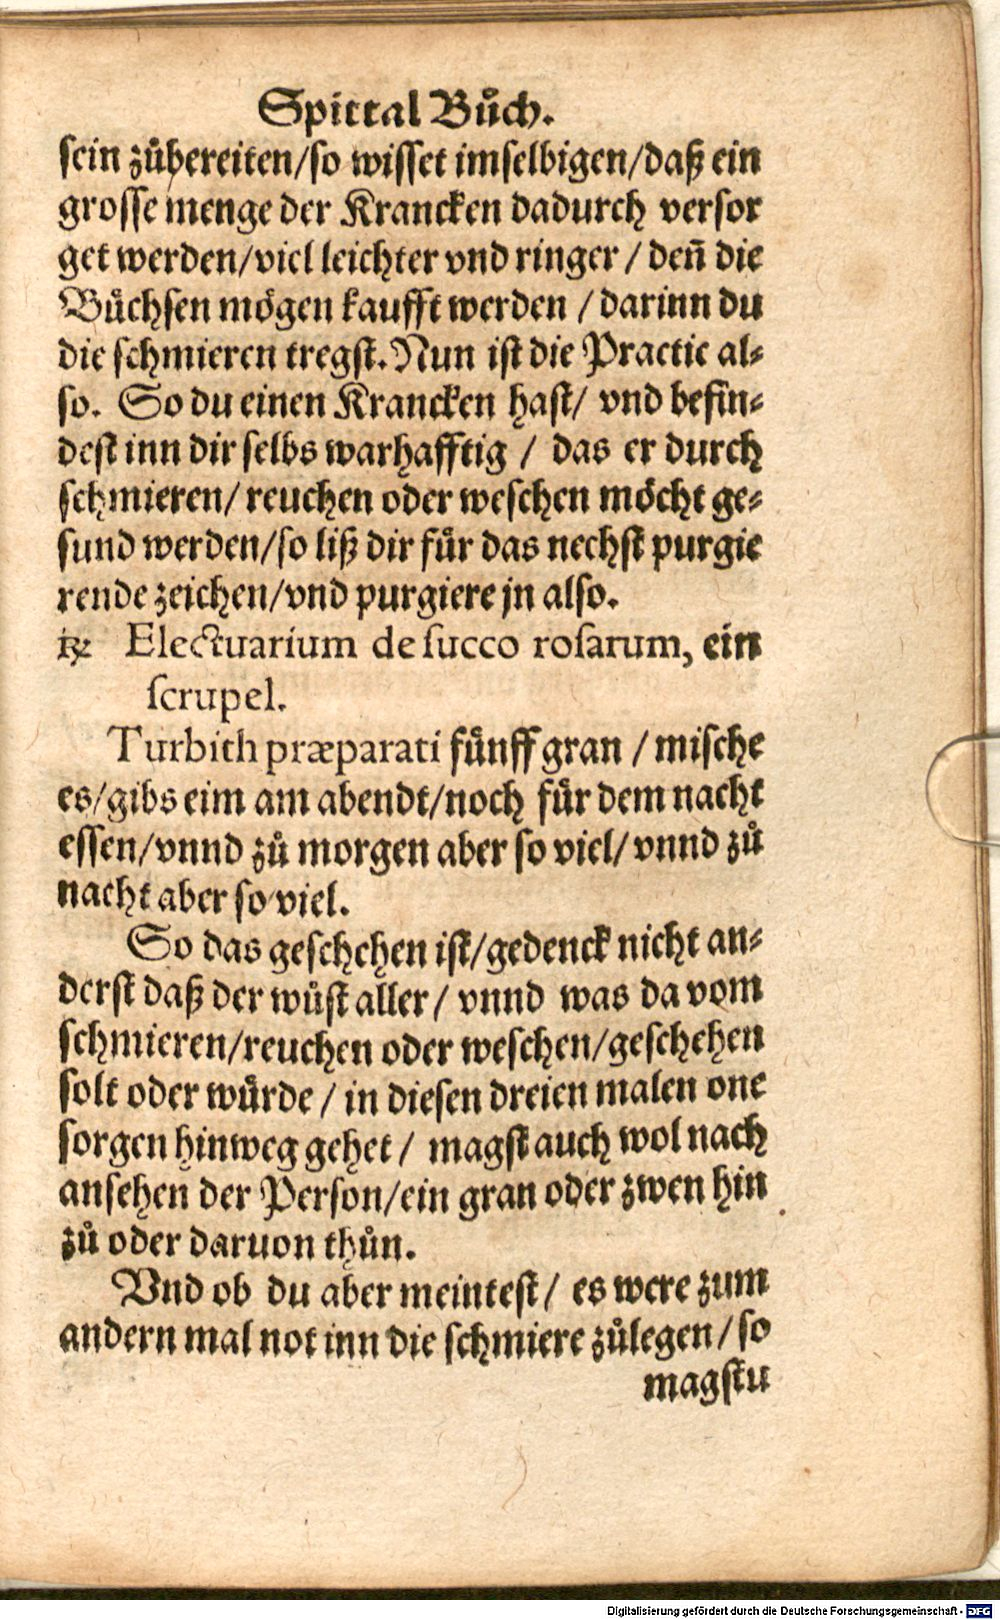 Spittal Bůch.
sein zůbereiten/so wisset imselbigen/daß ein
grosse menge der Krancken dadurch versor
get werden/viel leichter vnd ringer / deñ die
Bůchsen mögen kaufft werden / darinn du
die schmieren tregst. Nun ist die Practic al-
so. So du einen Krancken hast/ vnd befin-
dest inn dir selbs warhafftig / das er durch
schmieren/ reuchen oder weschen möcht ge-
sund werden/so liß dir für das nechst purgie
rende zeichen/vnd purgiere jn also.
℞ Electuarium de succo rosarum, ein
scrupel.
Turbith præparati fünff gran / mische
es/gibs eim am abendt/noch für dem nacht
essen/vnnd zů morgen aber so viel/ vnnd zů
nacht aber so viel.
So das geschehen ist/gedenck nicht an-
derst daß der wüst aller/ vnnd was da vom
schmieren/reuchen oder weschen/geschehen
solt oder würde / in diesen dreien malen one
sorgen hinweg gehet / magst auch wol nach
ansehen der Person/ein gran oder zwen hin
zů oder daruon thůn.
Vnd ob du aber meintest / es were zum
andern mal not inn die schmiere zůlegen / so
magstu
Digitalisierung gefördert durch die Deutsche Forschungsgemeinschaft - DFG